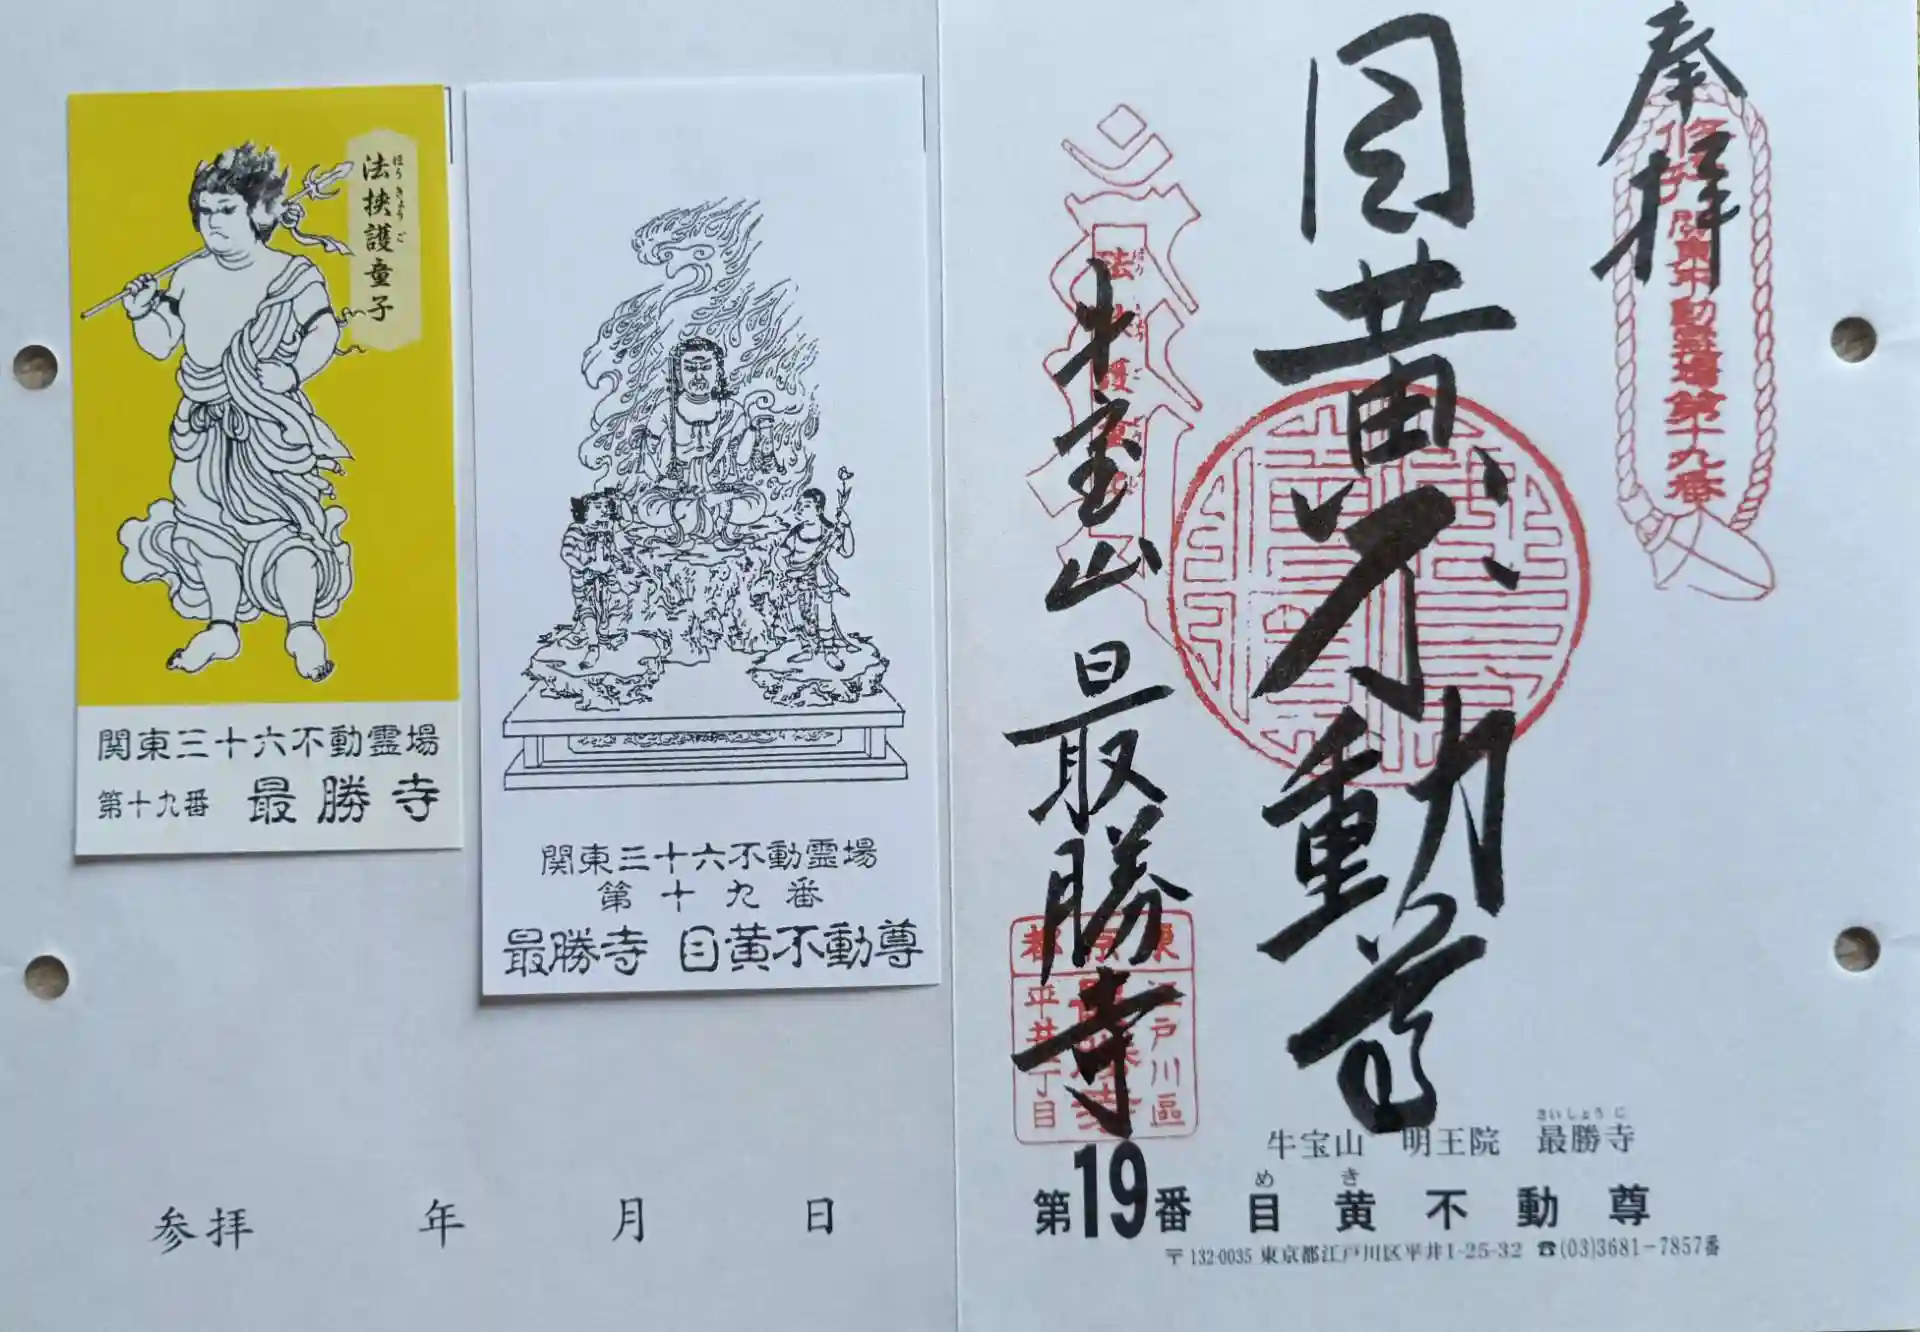 法挟護童子
ほうきょうご
関東三十六不動霊場
第十九番 最勝寺
関東三十六不動霊場
第十九番
最勝寺 目黄不動尊
参拝 年 月 日
奉拝
関東不動霊場第十九番
目黄不動尊
牛宝山最勝寺
東京都
江戸川區
平井一丁目
さいしょうじ
牛宝山 明王院 最勝寺
めき
第19番 目黄不動尊
〒132-0035 東京都江戸川区平井1-25-32 ☎(03)3681-7857番